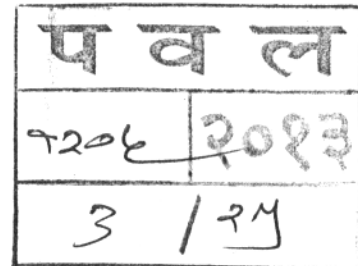 प व ल
१२०८ २०१३
3 / २५